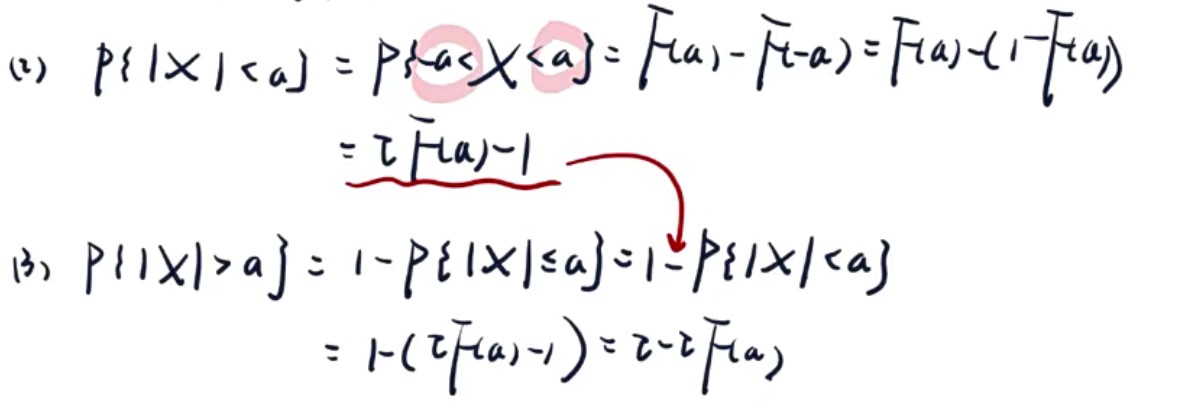 (2) P{|X|<a} = P{-a<X<a} = F(a)-F(-a) = F(a)-(1-F(a))
= 2F(a)-1
(3) P{|X|>a} = 1-P{|X|≤a} = 1-P{|X|<a}
= 1-(2F(a)-1) = 2-2F(a)